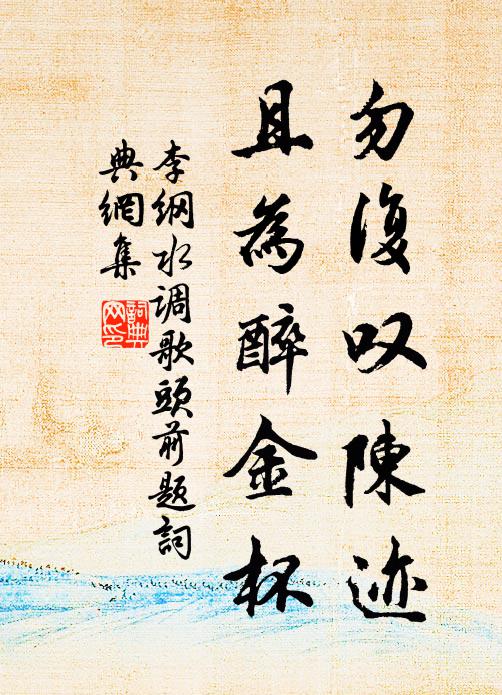 勿復叹陳迹
且為醉金杯
李纲水调歌頭前题詞
典網集
詞典网印